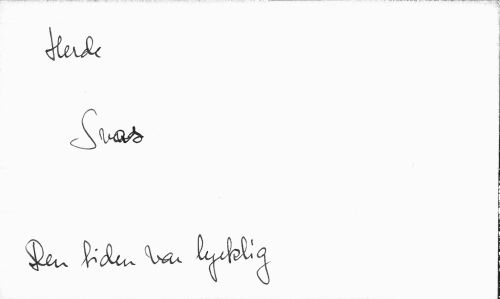 Herde
Svar
Den tiden var lycklig